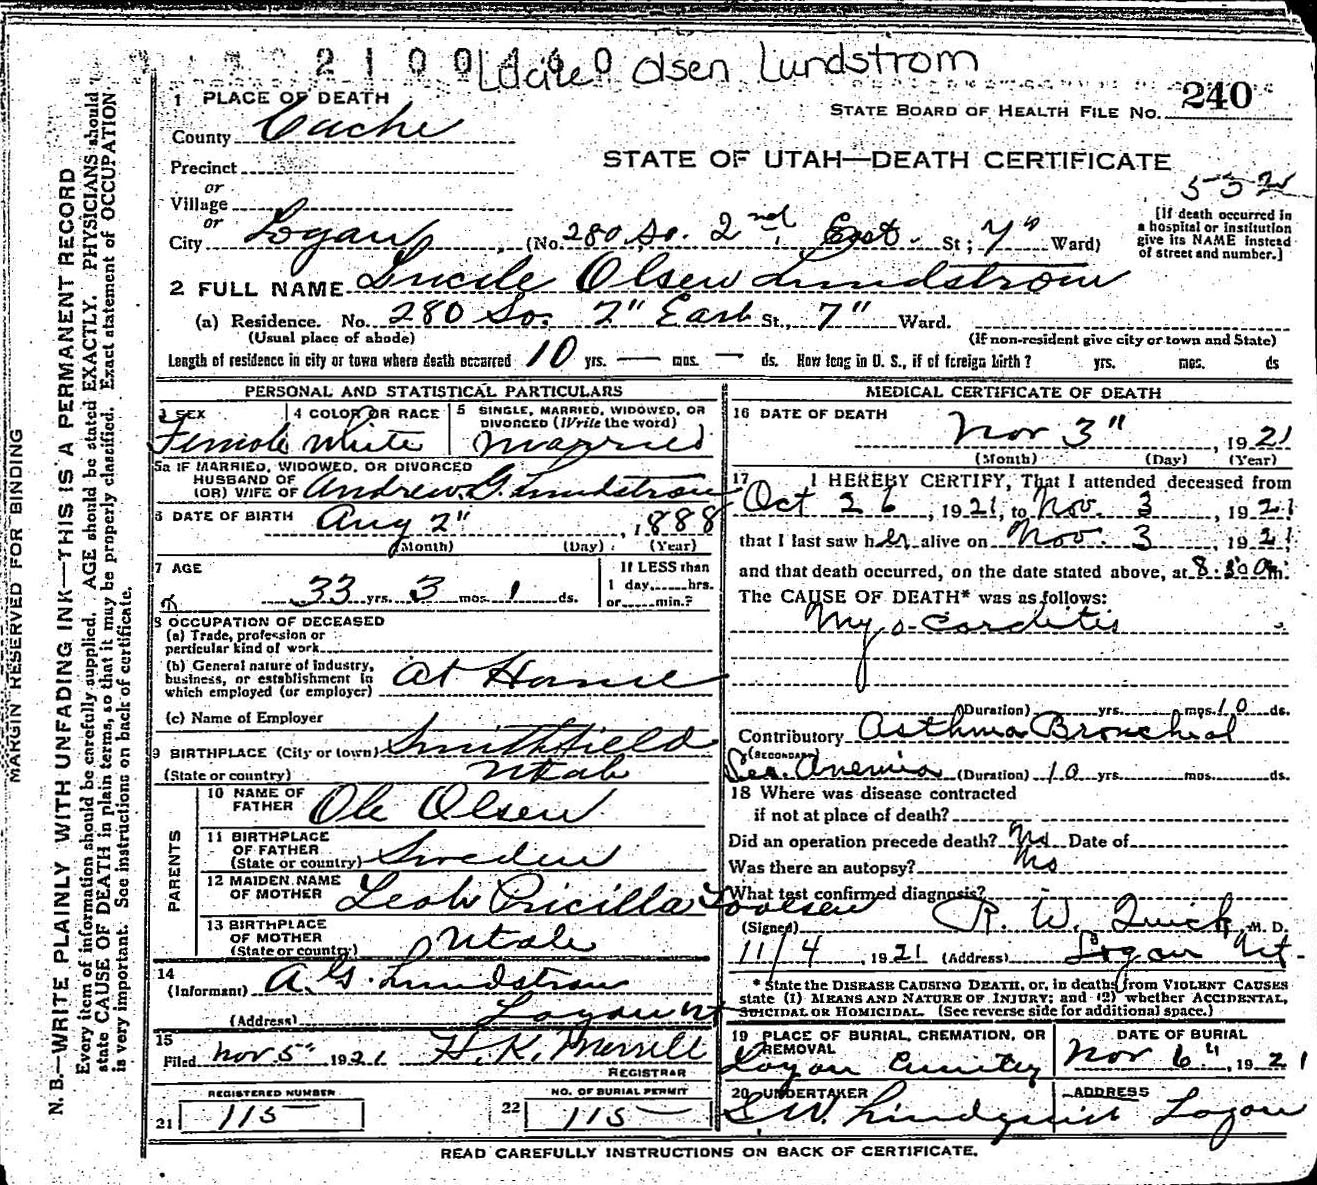 2100440
Lucile Olsen Lundstrom
1 PLACE OF DEATH
STATE BOARD OF HEALTH FILE No. 240
County Cache
STATE OF UTAH—DEATH CERTIFICATE
Precinct
or
Village
or
City Logan (No. 280 So. 2nd East. St; 7" Ward)
[If death occurred in
a hospital or institution
give its NAME instead
of street and number.]
2 FULL NAME Lucile Olsen Lundstrom
(a) Residence. No. 280 So. 2" East St., 7" Ward.
(Usual place of abode) (If non-resident give city or town and State)
Length of residence in city or town where death occurred 10 yrs. — mos. — ds. How long in U. S., if of foreign birth? yrs. mos. ds
PERSONAL AND STATISTICAL PARTICULARS
3 SEX
Female
4 COLOR OR RACE
White
5 SINGLE, MARRIED, WIDOWED, OR
DIVORCED (Write the word)
Married
5a IF MARRIED, WIDOWED, OR DIVORCED
HUSBAND OF
(OR) WIFE OF Andrew G. Lundstrom
6 DATE OF BIRTH Aug 2", 1888
(Month) (Day) (Year)
7 AGE
33 yrs. 3 mos. 1 ds.
If LESS than
1 day, hrs.
or min.?
8 OCCUPATION OF DECEASED
(a) Trade, profession or
particular kind of work
(b) General nature of industry,
business, or establishment in
which employed (or employer) At Home
(c) Name of Employer
9 BIRTHPLACE (City or town) Smithfield
(State or country) Utah
PARENTS
10 NAME OF
FATHER Ole Olsen
11 BIRTHPLACE
OF FATHER
(State or country) Sweden
12 MAIDEN NAME
OF MOTHER Leah Pricilla Toolsen
13 BIRTHPLACE
OF MOTHER
(State or country) Utah
14
(Informant) A. G. Lundstrom
(Address) Logan Ut
15
Filed Nov 5" 1921 H. K. Merrill
REGISTRAR
REGISTERED NUMBER
21 115
NO. OF BURIAL PERMIT
22 115
MEDICAL CERTIFICATE OF DEATH
16 DATE OF DEATH
Nov 3", 1921
(Month) (Day) (Year)
17 I HEREBY CERTIFY, That I attended deceased from
Oct 26, 1921, to Nov. 3, 1921
that I last saw her alive on Nov. 3, 1921
and that death occurred, on the date stated above, at 8.30 a m.
The CAUSE OF DEATH* was as follows:
Myo-carditis
(Duration) yrs. mos. 10 ds.
Contributory Asthma Broncheal
(SECONDARY)
Sec. Anemia (Duration) 10 yrs. mos. ds.
18 Where was disease contracted
if not at place of death?
Did an operation precede death? No Date of
Was there an autopsy? No
What test confirmed diagnosis?
(Signed) R. W. Quick, M. D.
11/4, 1921 (Address) Logan Ut.
* State the DISEASE CAUSING DEATH, or, in deaths from VIOLENT CAUSES
state (1) MEANS AND NATURE OF INJURY; and (2) whether ACCIDENTAL,
SUICIDAL OR HOMICIDAL. (See reverse side for additional space.)
19 PLACE OF BURIAL, CREMATION, OR
REMOVAL
Logan Cemitey
DATE OF BURIAL
Nov 6", 1921
20 UNDERTAKER
W. Lindquist
ADDRESS
Logan
READ CAREFULLY INSTRUCTIONS ON BACK OF CERTIFICATE.
MARGIN RESERVED FOR BINDING
N. B.—WRITE PLAINLY WITH UNFADING INK—THIS IS A PERMANENT RECORD
Every item of information should be carefully supplied. AGE should be stated EXACTLY. PHYSICIANS should
state CAUSE OF DEATH in plain terms, so that it may be properly classified. Exact statement of OCCUPATION
is very important. See instructions on back of certificate.